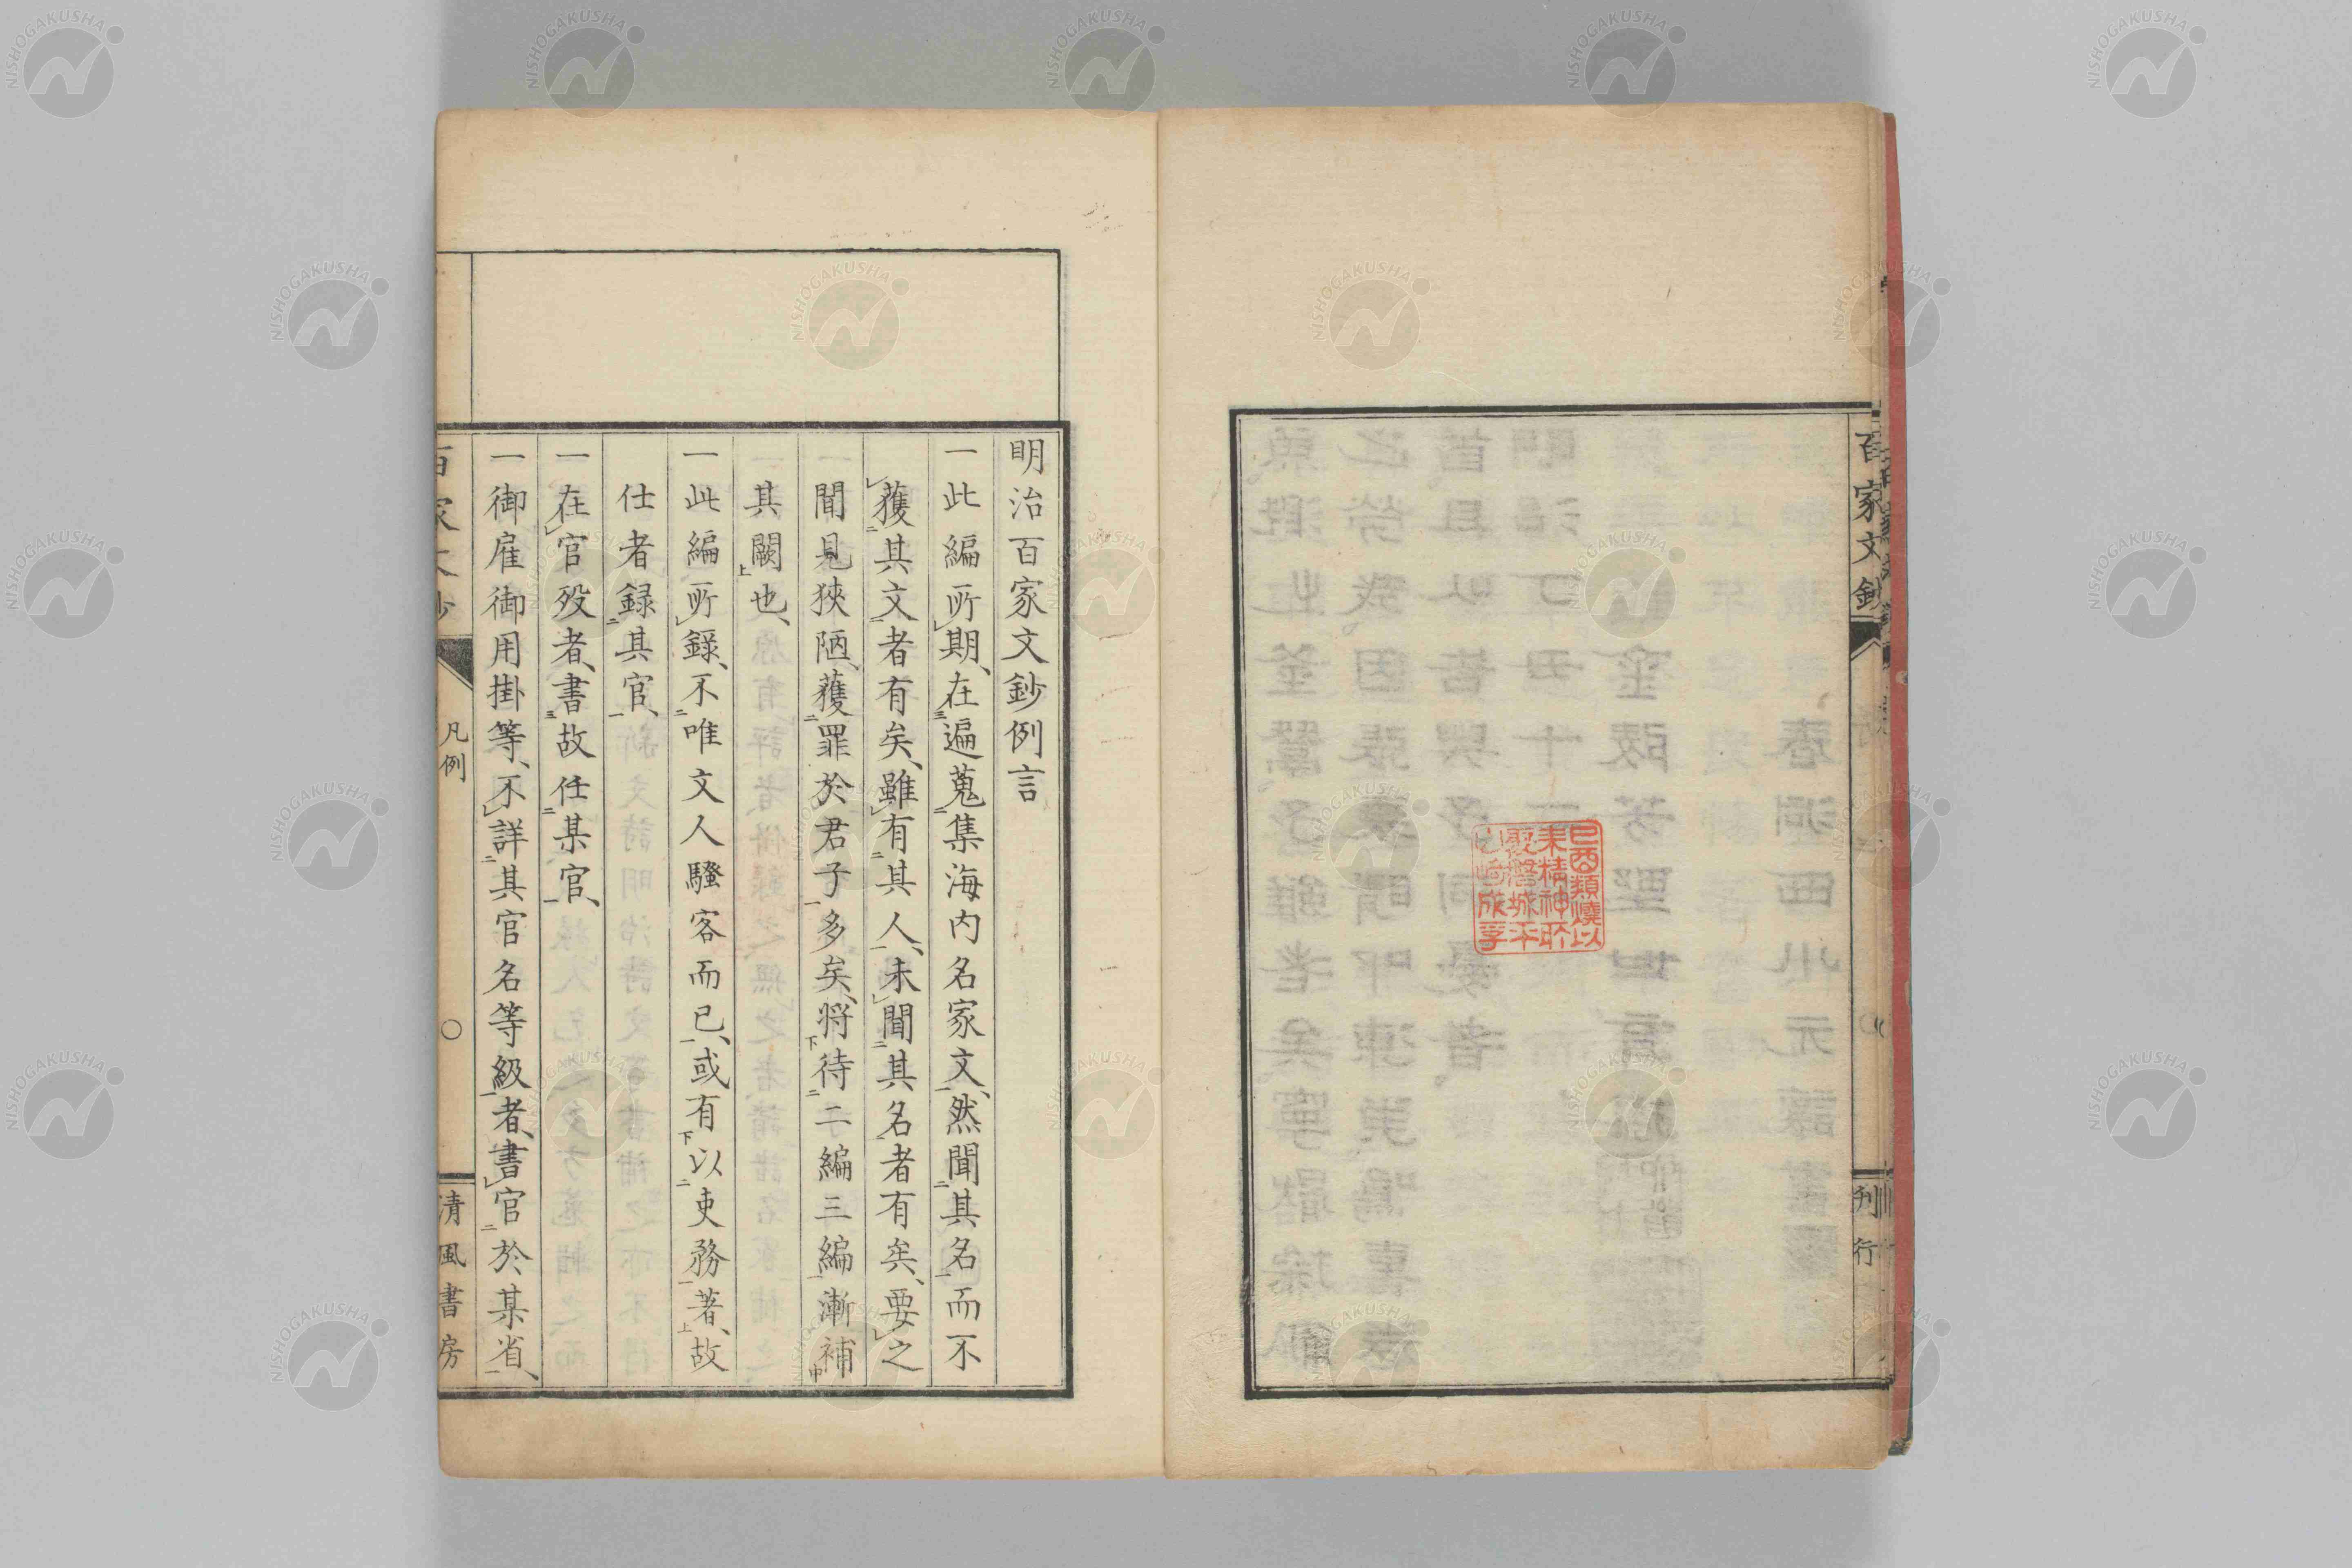 百家文鈔
刊行
己酉類燒以
来精神所
聚磐城平
山崎成孚
明治百家文鈔例言
一此編所期、在遍蒐集海内名家文、然聞其名而不
獲其文者有矣、雖有其人、未聞其名者有矣、要之
聞見狹陋、獲罪於君子多矣、将待二編三編漸補
其闕也、
一此編所録、不唯文人騷客而已、或有以吏務著、故
仕者録其官、
一在官歿者、書故任某官、
一御雇御用掛等、不詳其官名等級者、書官於某省、
百家文鈔
凡例
〇
清風書房
NISHOGAKUSHA